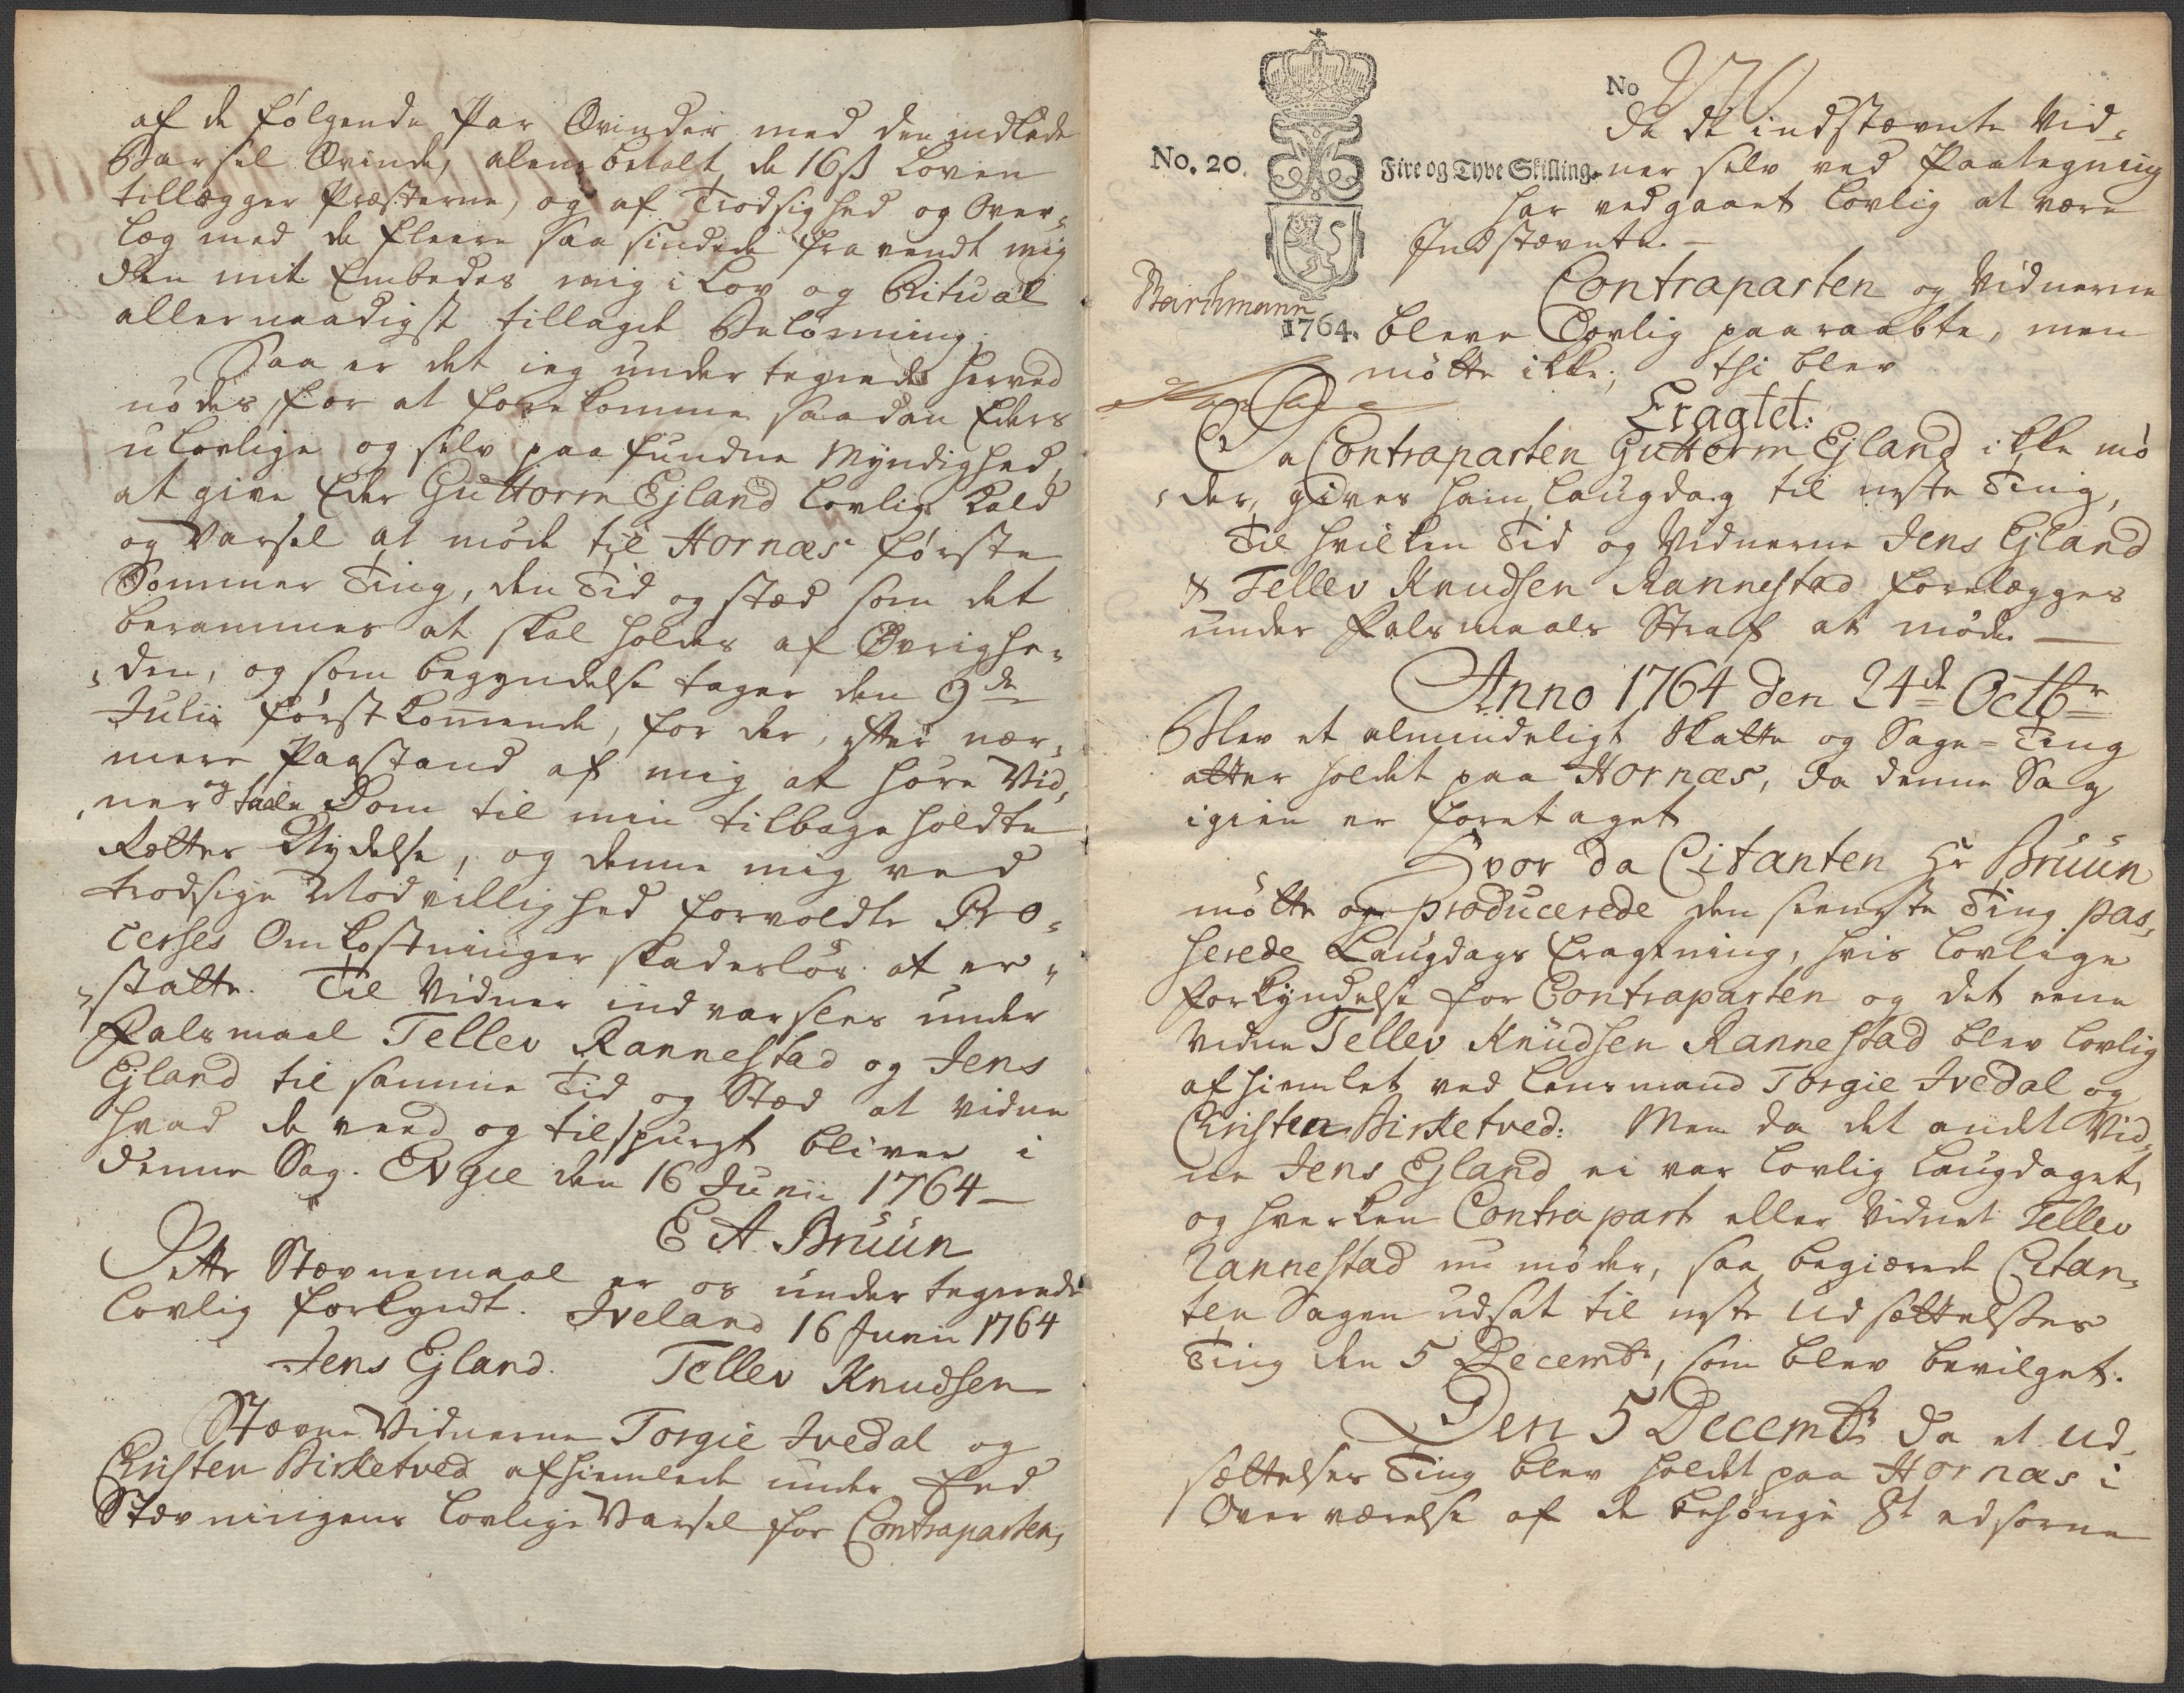 af de følgende Par Qvinder med den indledte
Barsel Qvinde, alene betalt de 16 ß Loven
tillægger Præsterne, og af Trodsighed og Over-
læg med de fleere saa sindede fra vendt mig
den mit Embedes mig i Lov og Ritual
allernaadigst tillagde Belønning;
Saa er det ieg under tegnede herved
nødes for at forekomme saadan Eders
ulovlige og selv paafundne Myndighed,
at give Eder Guttorm Ejland lovlig Kald
og Varsel at møde til Hornæs første
Sommer Ting, den Tid og stæd som det
berammes at skal holdes af Øvrighe-
den, og som begyndelse tager den 9de
Julii førstkommende, for der, efter nær-
mere Paastand af mig at høre Vid-
ner og taale Dom til min tilbageholdte
Rettes Nydelse, og denne mig ved
trodsige Modvillighed forvoldte Pro-
cesses Omkostninger skadesløs at er-
statte. Til Vidner indvarsles under
Falsmaal Tellev Rannestad og Jens
Ejland til samme Tid og Stæd at vidne
hvad de veed og tilspurgt bliver i
denne Sag. Evgie den 16 Junii 1764
E A. Bruun
Dette Stævnemaal er os under tegnede
lovlig forkyndt. Iveland 16 Junii 1764
Jens Ejland. Tellev Knudsen
Stævne Vidnerne Torgie Ivedal og
Christen Birketved afhiemlede under Eed
Stævningens lovlige Varsel for Contraparten,
No
No. 20.
Fire og Tyve Skilling.
1764.
da de indstævnte Vid-
ner selv ved Paategning
har vedgaaet lovlig at være
Indstævnte.
Contraparten og Vidnerne
bleve lovlig paaraabte, men
mötte ikke; thi blev
Eragtet:
Da Contraparten Guttorm Ejland ikke mö
der, gives ham Laugdag til neste Ting,
Til hvilken Tid og Vidnerne Jens Ejland
& Tellev Knudsen Rannestad forelægges
under Falsmaals Straf at møde.
Anno 1764 den 24de Octbr
Blev et almindeligt Skatte og Sage-Ting
atter holdet paa Hornæs, da denne Sag
igien er foretaget
Hvor da Citanten Hr Bruun
mötte og producerede den seenste Ting pas-
serede Laugdags Eragtning, hvis lovlige
forkyndelse for Contraparten og det eene
Vidne Tellev Knudsen Rannestad blev lovlig
afhiemlet ved Lensmand Torgie Ivedal og
Christen Birketved: Men da det andet Vid-
ne Jens Ejland ei var lovlig Laugdaget,
og hverken Contrapart eller Vidnet Tellev
Rannestad nu møder, saa begiærede Citan-
ten Sagen udsat til neste Udsættelses
Ting den 5 Decembr, som blev bevilget.
Den 5 Decembr da et Ud-
sættelses Ting blev holdet paa Hornæs i
Overværelse af de behørige 8t edsorne